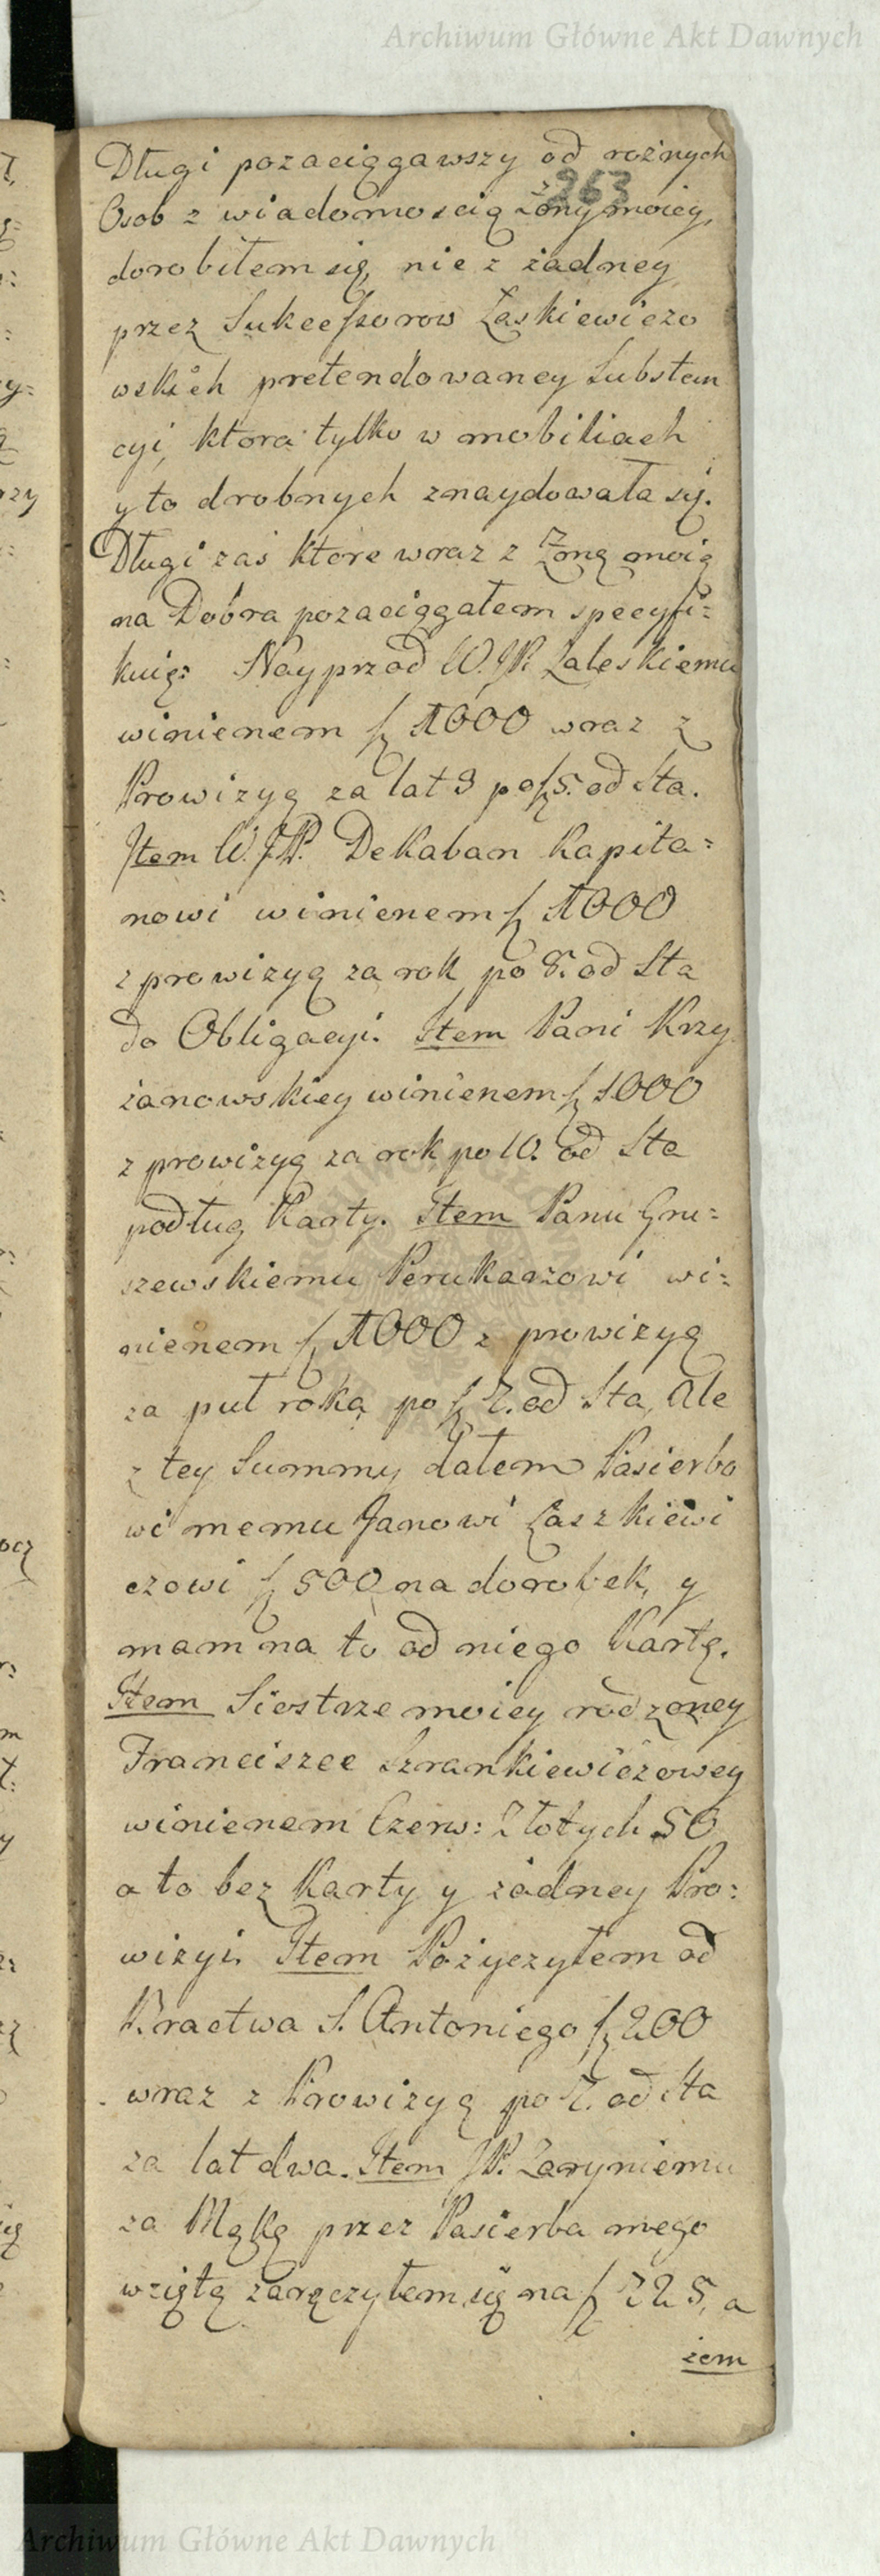 Archiwum Główne Akt Dawnych
Długi pozaciągawszy od rożnych
263
Osob z wiadomoscią Żony moiey,
dorobiłem się, nie z żadney
przez Sukcessorow Łaskiewiczo
wskich pretendowaney Substan
cyi, ktora tylko w mobiliach
y to drobnych znaydowała się.
Długi zaś ktore wraz z Żoną moią
na Dobra pozaciągałem specyfi=
kuię: Nayprzod W. JP. Zaleskiemu
winienem fł 1000 wraz z
Prowizyą za lat 3 po fł 5. od Sta.
Item W. JP. Dekaban Kapita=
nowi winienem fł 1000
z prowizyą za rok po 8. od Sta
do Obligacyi. Item Pani Krzy
żanowskiey winienem fł 1000
z prowizyą za rok po 10. od Sta
podług Karty. Item Panu Gru=
szewskiemu Perukarzowi wi=
nienem fł 1000 z prowizyą
za puł roka po fł 7. od Sta, Ale
z tey Summy dałem Pasierbo
wi memu Janowi Łaszkiewi
czowi fł 500 na dorobek, y
mam na to od niego Kartę.
Item Siestrze moiey rodzoney
Franciszce Szrankiewiczowey
winienem Czerw: Złotych 50
a to bez Karty y żadney Pro=
wizyi. Item Pożyczyłem od
Bractwa S. Antoniego fł 200
wraz z Prowizyą po 7. od Sta
za lat dwa. Item JP. Zaryniemu
za Mąkę przez Pasierba mego
wziętą zaręczyłem się na fł 725, a
żem
Archiwum Główne Akt Dawnych